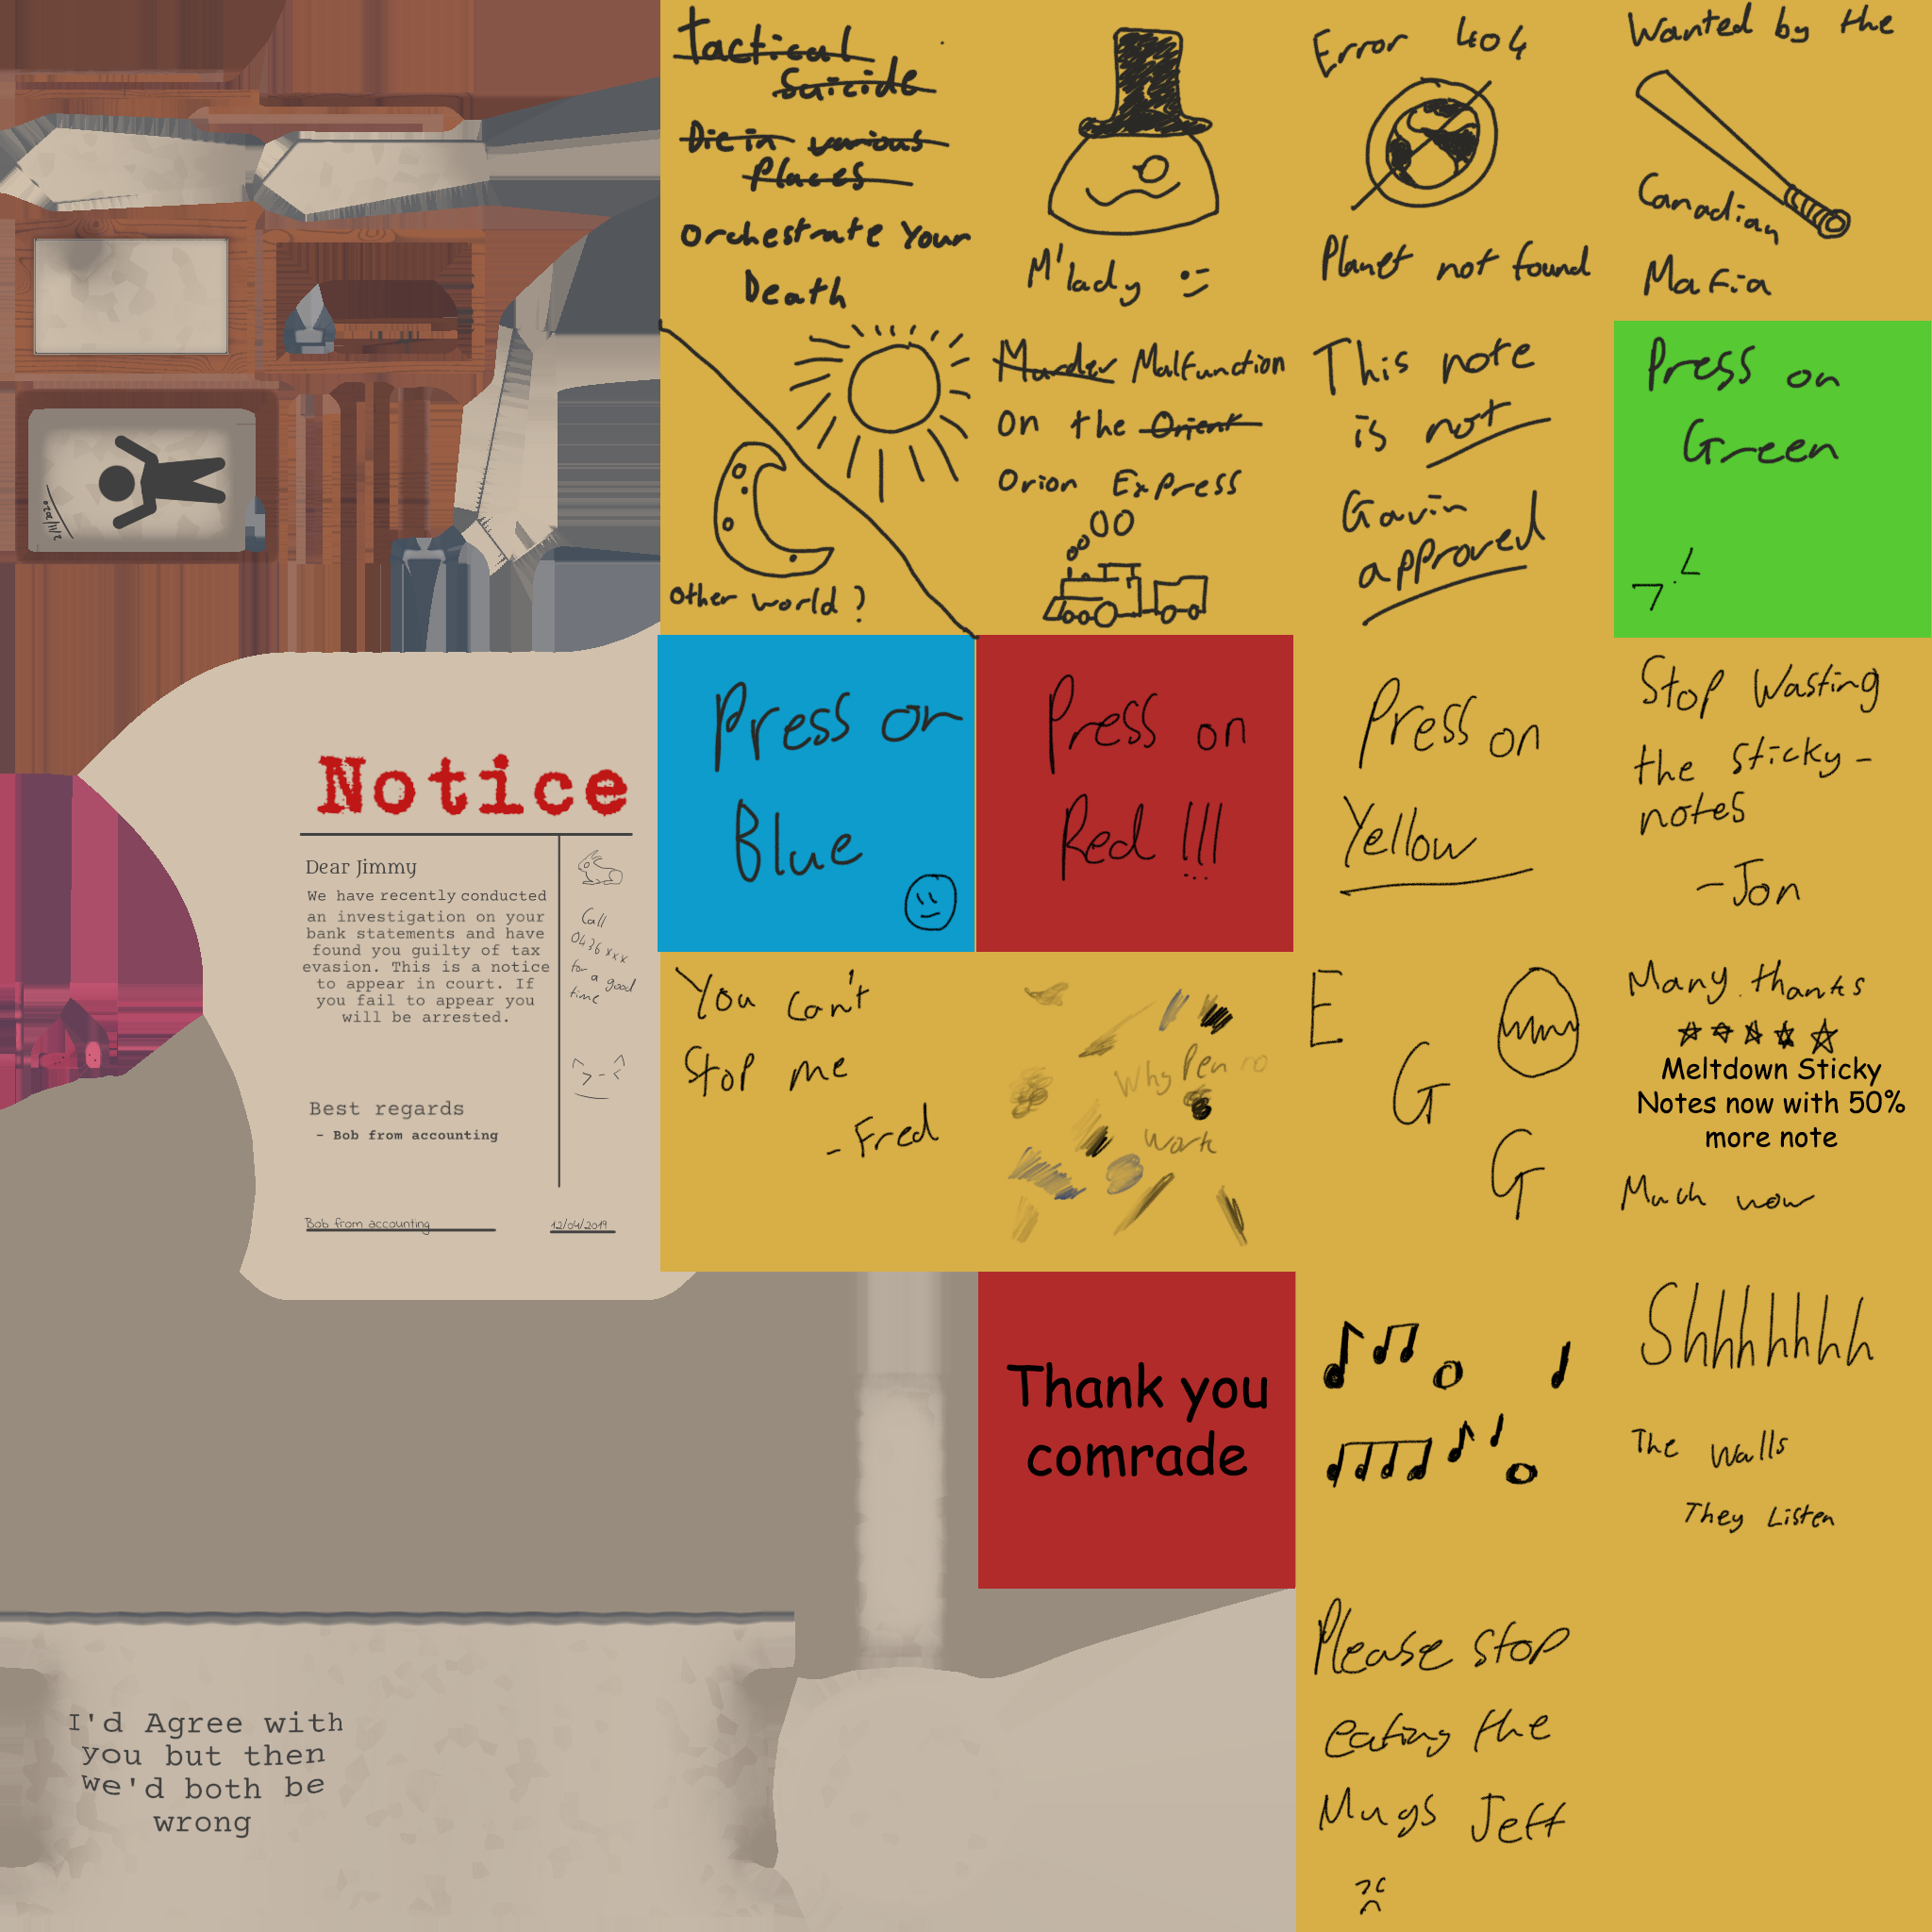 Tactical
Suicide
Die in various
Places
Orchestrate Your
Death
M'lady :-
Error 404
Planet not found
Wanted by the
Canadian
Mafia
Other world?
Murder Malfunction
On the Orient
Orion Express
This note
is not
Gavin
approved
Press on
Green
Press on
Blue
Press on
Red !!!
Press on
Yellow
Stop Wasting
the sticky-
notes
-Jon
Notice
Dear Jimmy
We have recently conducted
an investigation on your
bank statements and have
found you guilty of tax
evasion. This is a notice
to appear in court. If
you fail to appear you
will be arrested.
Call
0436xxx
for a good
time
Best regards
- Bob from accounting
Bob from accounting
12/04/2019
You can't
Stop me
- Fred
Why Pen no
work
E
G
G
Many thanks
Meltdown Sticky
Notes now with 50%
more note
Much wow
Thank you
comrade
Shhhhhhh
The Walls
They Listen
I'd Agree with
you but then
we'd both be
wrong
Please stop
eating the
Mugs Jeff